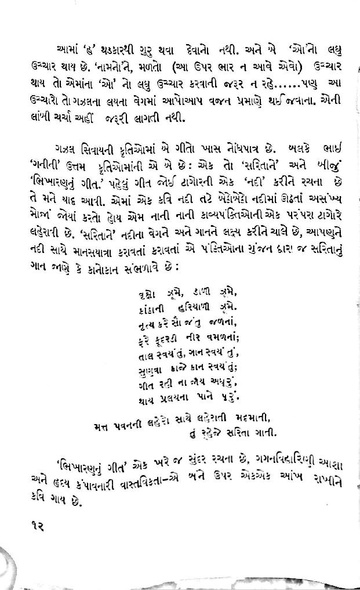 આમાં 'હ' થડકારથી શરૂ થવા દેવાનો નથી. અને બે 'ઓ'નો લઘુ
ઉચ્ચાર થાય છે. 'નામનો'ને, મળતો (આ ઉપર ભાર ન આવે એવો) ઉચ્ચાર
થાય તો એમાંના 'ઓ' નો લઘુ ઉચ્ચાર કરવાની જરૂર ન રહે......પણ આ
ઉચ્ચારો તો ગઝલના લયના વેગમાં આપોઆપ વજન પ્રમાણે થઈ જવાના. એની
લાંબી ચર્ચા અહીં જરૂરી લાગતી નથી.
ગઝલ સિવાયની કૃતિઓમાં બે ગીતો ખાસ નોંધપાત્ર છે. બલકે ભાઈ
'ગનીની' ઉત્તમ કૃતિઓમાંની એ બે છે : એક તો 'સરિતાને' અને બીજું
'ભિખારણનું ગીત.' પહેલું ગીત જોઈ ટાગોરની એક 'નદી' કરીને રચના છે
તે મને યાદ આવી. એમાં એક કવિ નદી તટે બેઠોબેઠો નદીમાં ઊઠતાં અસંખ્ય
મોજાં જોયાં કરતો હોય એમ નાની નાની કાવ્યપંક્તિઓની એક પરંપરા ટાગોરે
લહેરાવી છે. 'સરિતાને' નદીના વેગને અને ગાનને લક્ષ્ય કરીને ચાલે છે, આપણને
નદી સાથે માનસયાત્રા કરાવતાં કરાવતાં એ પંક્તિઓના ગુંજન દ્વારા જ સરિતાનું
ગાન જાણે કે કાનોકાન સંભળાવે છે :
વૃક્ષો ઝૂમે, ડાળી ઝૂમે,
કાંઠાની હરિયાળી ઝૂમે.
નૃત્ય કરે સૌ જંતુ જળનાં,
ફરે ફૂદરડી નીર વમળનાં;
તાલ સ્વયં તું, ગાન સ્વયં તું,
સુણવા કાજે કાન સ્વયં તું;
ગીત રહી ના જાય અધૂરું,
થાય પ્રલયના પાને પૂરું.
મત્ત પવનની લહેરો સાથે લહેરાતી મદમાતી,
તું રહેજે સરિતા ગાતી.
'ભિખારણનું ગીત' એક ખરે જ સુંદર રચના છે. ગગનવિહારિણી આશા
અને હૃદય કંપાવનારી વાસ્તવિકતા–એ બંને ઉપર એકએક આંખ રાખીને
કવિ ગાય છે.
૧૨